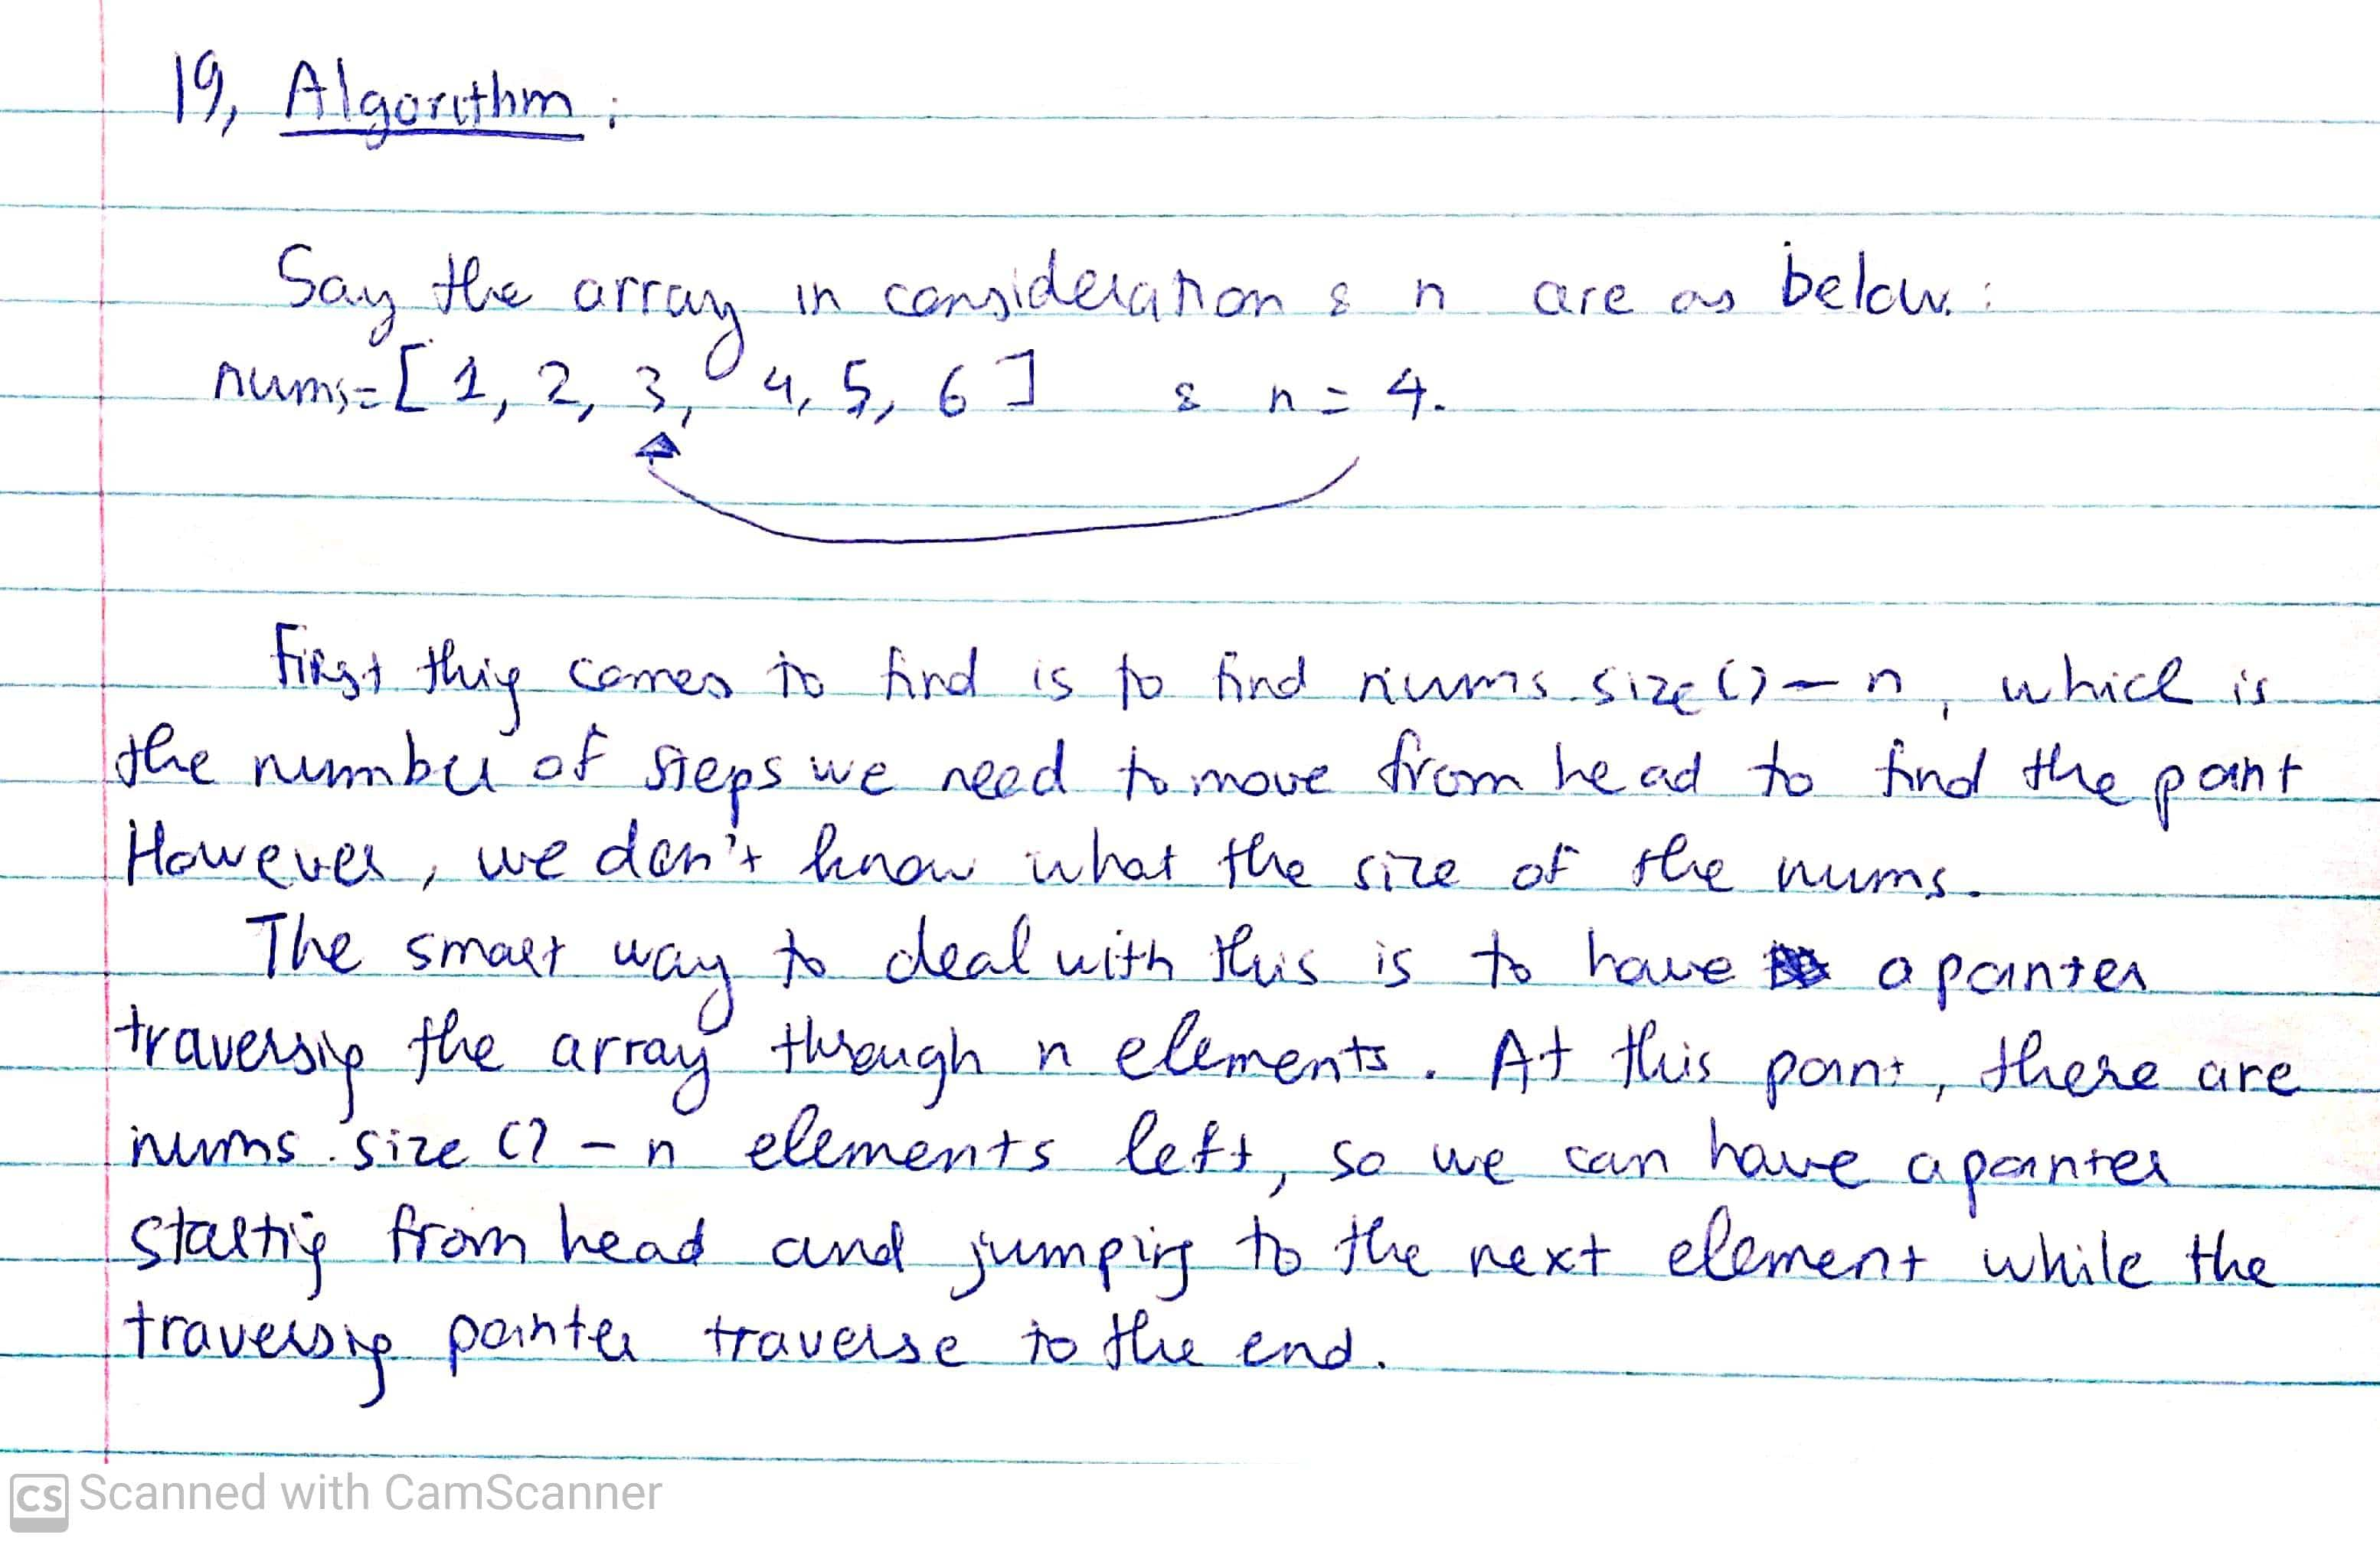 19, Algorithm :
Say the array in consideration & n are as below :
nums = [ 1, 2, 3, 4, 5, 6 ] & n = 4.
First thing comes to find is to find nums.size() - n, which is
the number of steps we need to move from head to find the point
However, we don't know what the size of the nums.
The smart way to deal with this is to have a pointer
traversing the array through n elements. At this point, there are
nums.size() - n elements left, so we can have a pointer
starting from head and jumping to the next element while the
traversing pointer traverse to the end.
CS Scanned with CamScanner